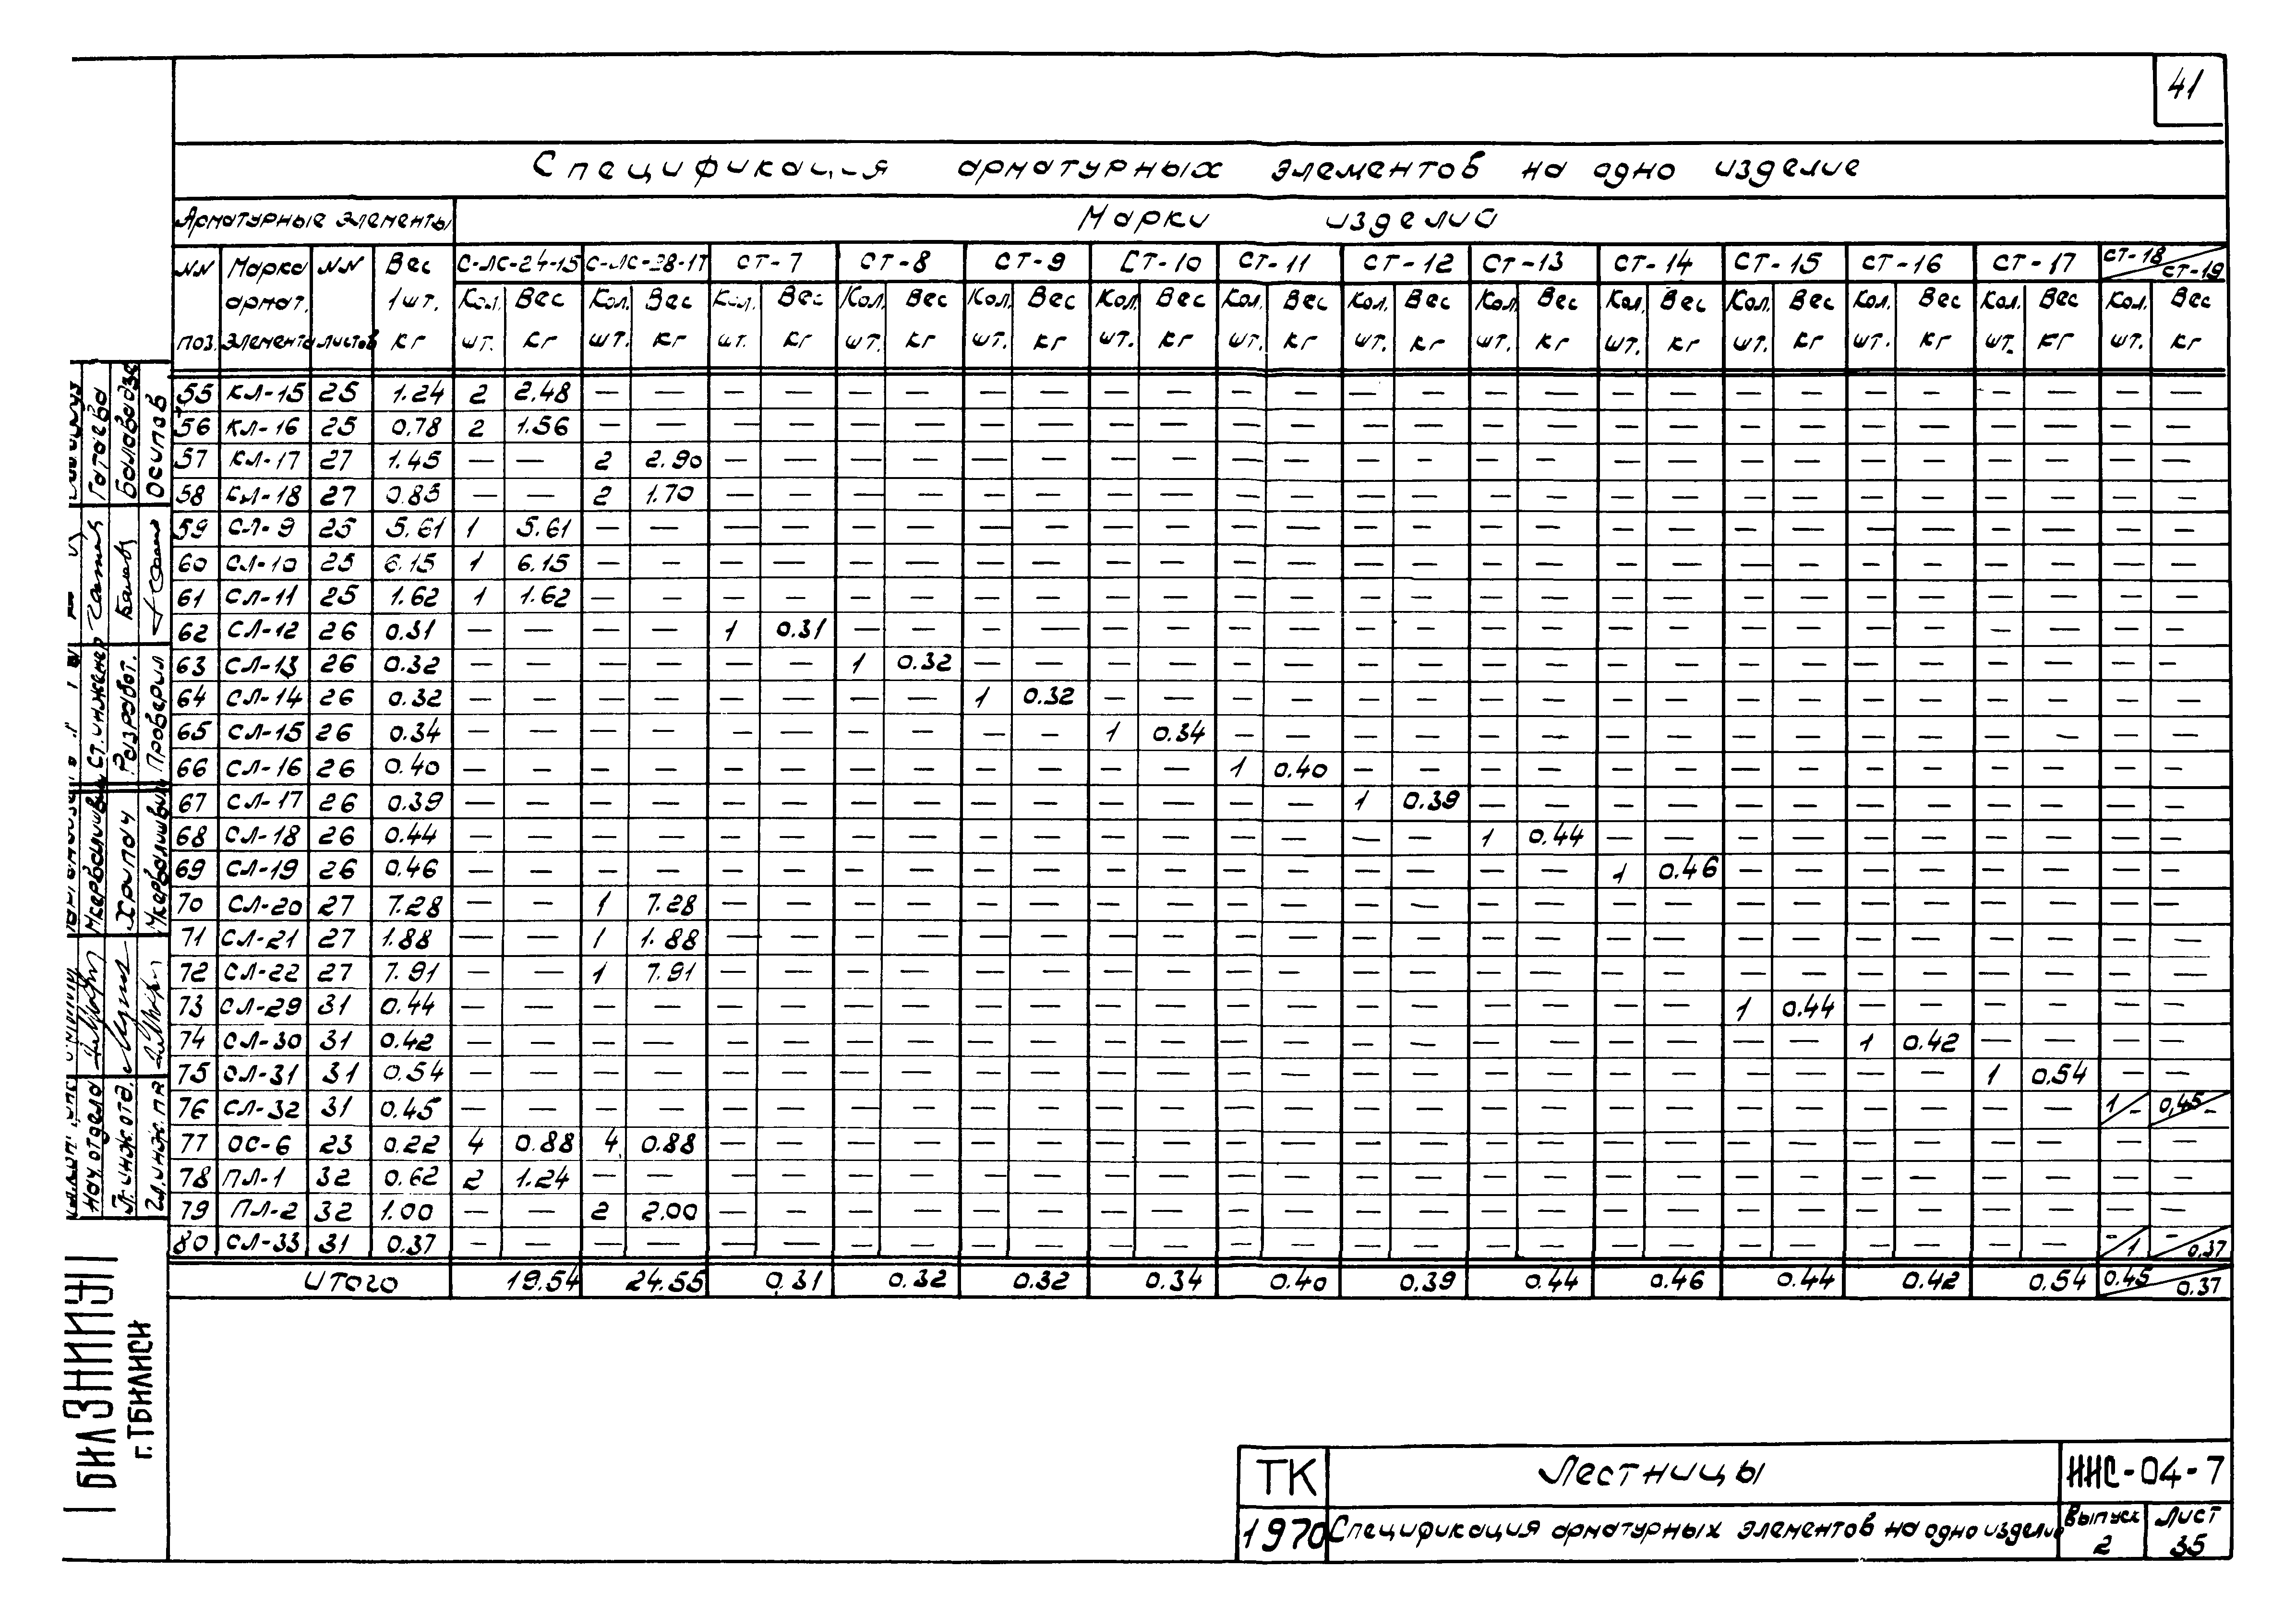 41
Спецификация арматурных элементов на одно изделие
Арматурные элементы Марки изделий
NN поз. Марка армат. элемента NN листов Вес 1шт. кг С-ЛС-24-15 С-ЛС-28-17 СТ-7 СТ-8 СТ-9 СТ-10 СТ-11 СТ-12 СТ-13 СТ-14 СТ-15 СТ-16 СТ-17 СТ-18 СТ-19
Кол. Вес Кол. Вес Кол. Вес Кол. Вес Кол. Вес Кол. Вес Кол. Вес Кол. Вес Кол. Вес Кол. Вес Кол. Вес Кол. Вес Кол. Вес Кол. Вес
шт. кг шт. кг шт. кг шт. кг шт. кг шт. кг шт. кг шт. кг шт. кг шт. кг шт. кг шт. кг шт. кг шт. кг
55 КЛ-15 25 1.24 2 2.48 — — — — — — — — — — — — — — — — — — — — — — — — — —
56 КЛ-16 25 0.78 2 1.56 — — — — — — — — — — — — — — — — — — — — — — — — — —
57 КЛ-17 27 1.45 — — 2 2.90 — — — — — — — — — — — — — — — — — — — — — — — —
58 КЛ-18 27 0.85 — — 2 1.70 — — — — — — — — — — — — — — — — — — — — — — — —
59 СЛ-9 25 5.61 1 5.61 — — — — — — — — — — — — — — — — — — — — — — — — — —
60 СЛ-10 25 6.15 1 6.15 — — — — — — — — — — — — — — — — — — — — — — — — — —
61 СЛ-11 25 1.62 1 1.62 — — — — — — — — — — — — — — — — — — — — — — — — — —
62 СЛ-12 26 0.31 — — — — 1 0.31 — — — — — — — — — — — — — — — — — — — — — —
63 СЛ-13 26 0.32 — — — — — — 1 0.32 — — — — — — — — — — — — — — — — — — — —
64 СЛ-14 26 0.32 — — — — — — — — 1 0.32 — — — — — — — — — — — — — — — — — —
65 СЛ-15 26 0.34 — — — — — — — — — — 1 0.34 — — — — — — — — — — — — — — — —
66 СЛ-16 26 0.40 — — — — — — — — — — — — 1 0.40 — — — — — — — — — — — — — —
67 СЛ-17 26 0.39 — — — — — — — — — — — — — — 1 0.39 — — — — — — — — — — — —
68 СЛ-18 26 0.44 — — — — — — — — — — — — — — — — 1 0.44 — — — — — — — — — —
69 СЛ-19 26 0.46 — — — — — — — — — — — — — — — — — — 1 0.46 — — — — — — — —
70 СЛ-20 27 7.28 — — 1 7.28 — — — — — — — — — — — — — — — — — — — — — — — —
71 СЛ-21 27 1.88 — — 1 1.88 — — — — — — — — — — — — — — — — — — — — — — — —
72 СЛ-22 27 7.91 — — 1 7.91 — — — — — — — — — — — — — — — — — — — — — — — —
73 СЛ-29 31 0.44 — — — — — — — — — — — — — — — — — — — — 1 0.44 — — — — — —
74 СЛ-30 31 0.42 — — — — — — — — — — — — — — — — — — — — — — 1 0.42 — — — —
75 СЛ-31 31 0.54 — — — — — — — — — — — — — — — — — — — — — — — — 1 0.54 — —
76 СЛ-32 31 0.45 — — — — — — — — — — — — — — — — — — — — — — — — — — 1/- 0,45/-
77 ОС-6 23 0.22 4 0.88 4 0.88 — — — — — — — — — — — — — — — — — — — — — — — —
78 ПЛ-1 32 0.62 2 1.24 — — — — — — — — — — — — — — — — — — — — — — — — — —
79 ПЛ-2 32 1.00 — — 2 2.00 — — — — — — — — — — — — — — — — — — — — — — — —
80 СЛ-33 31 0.37 — — — — — — — — — — — — — — — — — — — — — — — — — — -/1 -/0.37
Итого 19.54 24.55 0.31 0.32 0.32 0.34 0.40 0.39 0.44 0.46 0.44 0.42 0.54 0.45/0.37
Ст. инженер Гатаева
Разработ.
Проверил Осипов
Нач. отдела
Гл. инж. отд.
Гл. инж. пр.
г. ТБИЛИСИ
ТК Лестницы ИИС-04-7
1970 Спецификация арматурных элементов на одно изделие Выпуск 2 Лист 35